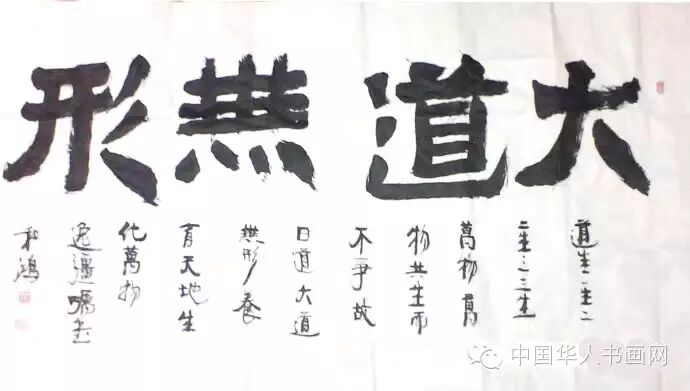 大道無形
道生一生二
二生三三生
萬物萬
物共生而
不爭故
曰道大道
無形養
育天地生
化萬物
和鴻
中国华人书画网